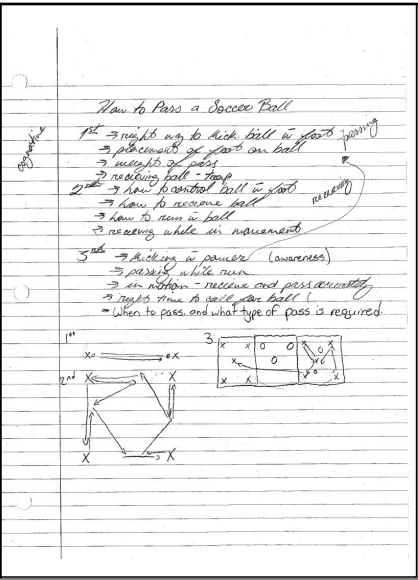 How to Pass a Soccer Ball
cognative
1st → right way to kick ball w̄ foot passing
→ placement of foot on ball
→ weight of pass
→ recieving ball - trap
2nd → how to control ball w̄ foot recieving
→ how to recieve ball
→ how to run w̄ ball
→ recieving while in movement
3rd → kicking w̄ power (awareness)
→ passing while run
→ in motion - recieve and pass accurately
→ right time to call for ball!
- When to pass, and what type of pass is required.
1st
X o o X
2nd X X
X X
3. X X O O X X
X O X O
X X O X